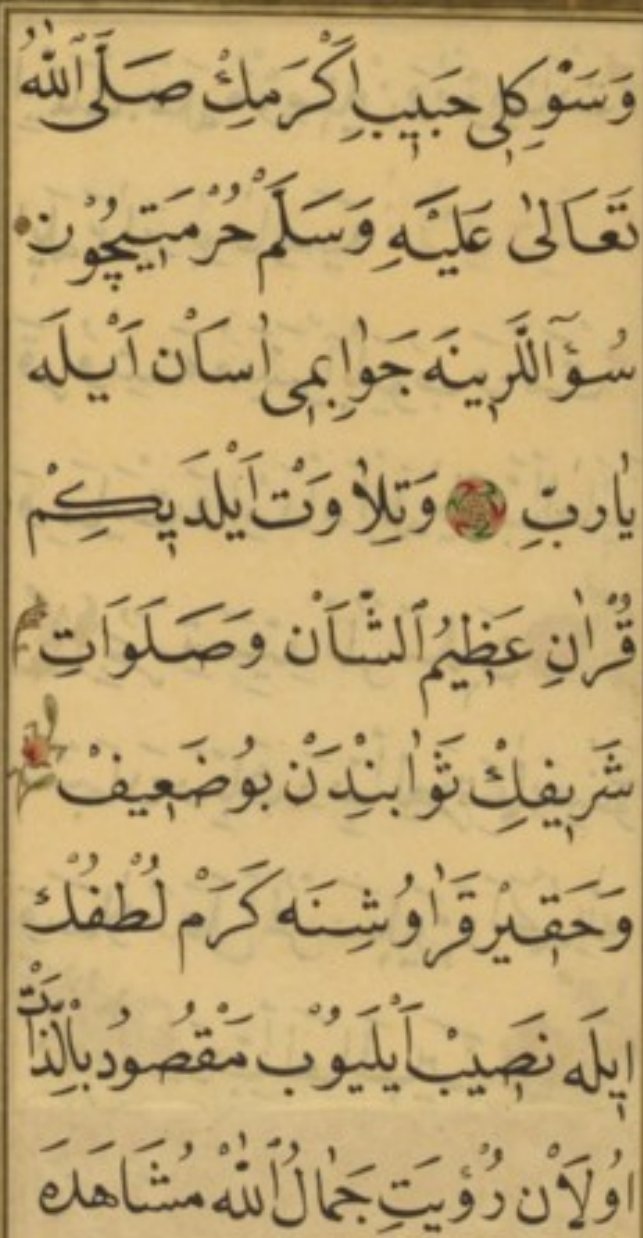 وَسَوْكِلِى حَبِيبِ اَكْرَمِكْ صَلَّى ٱللّٰهُ
تَعَالىٰ عَلَيْهِ وَسَلَّمْ حُرْمَتِيچُوْن
سُؤَاللَّرِينَه جَوٰابِمِى اٰسَانْ اَيْلَه
يٰارَبِّ وَتِلاٰوَتْ اَيْلَدِيكِمْ
قُرْاٰنِ عَظِيمُ ٱلشَّانْ وَصَلَوَاتِ
شَرِيفِكْ ثَوٰابِنْدَنْ بُوضَعِيفْ
وَحَقِيْر قَرَاوُشِنَه كَرَمْ لُطْفُكْ
اِيلَه نَصِيبْ اَيْلَيُوْب مَقْصُودُ بِالذَّاتْ
اُولاَنْ رُؤْيَتِ جَمٰالُ ٱللّٰهْ مُشَاهَدَهَ